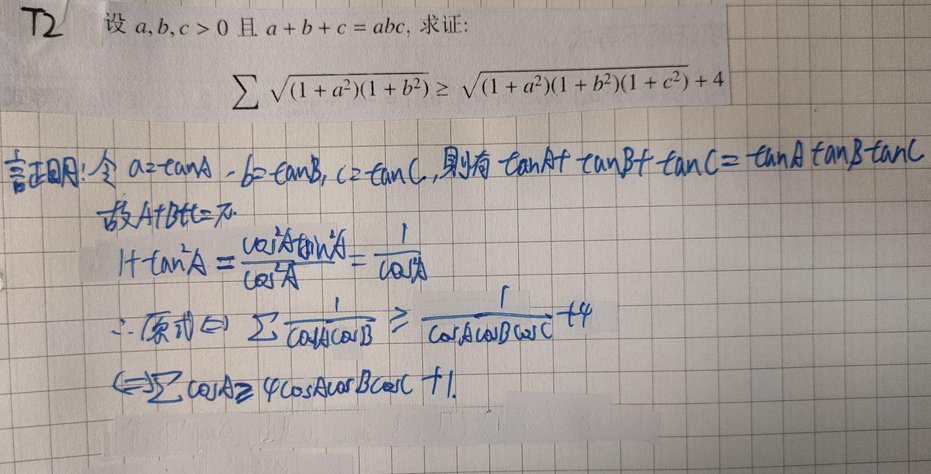 T2 设 a, b, c > 0 且 a + b + c = abc, 求证:
∑ √(1 + a²)(1 + b²) ≥ √(1 + a²)(1 + b²)(1 + c²) + 4
证明: 令 a=tanA, b=tanB, c=tanC, 则有 tanA+tanB+tanC=tanAtanBtanC
故A+B+C=π.
1+tan²A = (cos²A+sin²A)/cos²A = 1/cos²A
∴原式⇔ ∑ 1/(cosAcosB) ≥ 1/(cosAcosBcosC) +4
⇔∑cosA≥4cosAcosBcosC+1.